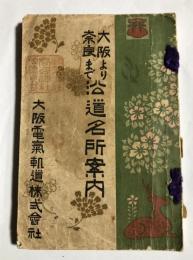 大阪より
奈良まで…
公道名所案内
大阪電氣軌道株式會社